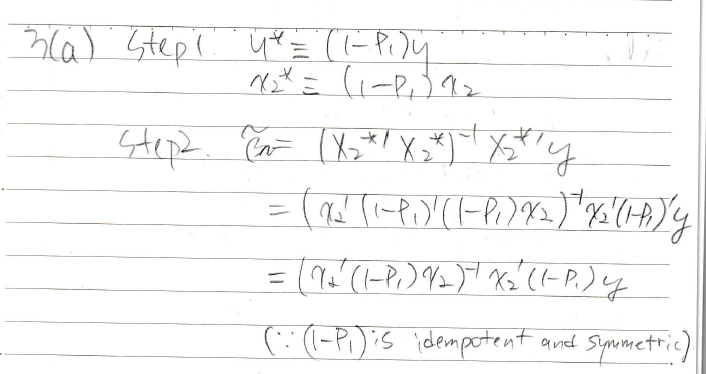 3(a) Step1. y* ≡ (1-P₁)y
x₂* ≡ (1-P₁)x₂
Step2. β̃₂ = (X₂*' X₂*)⁻¹ X₂*'y
= (x₂' (1-P₁)'(1-P₁)x₂)⁻¹ x₂'(1-P₁)'y
= (x₂'(1-P₁)x₂)⁻¹ x₂'(1-P₁)y
(∵ (1-P₁) is idempotent and symmetric)